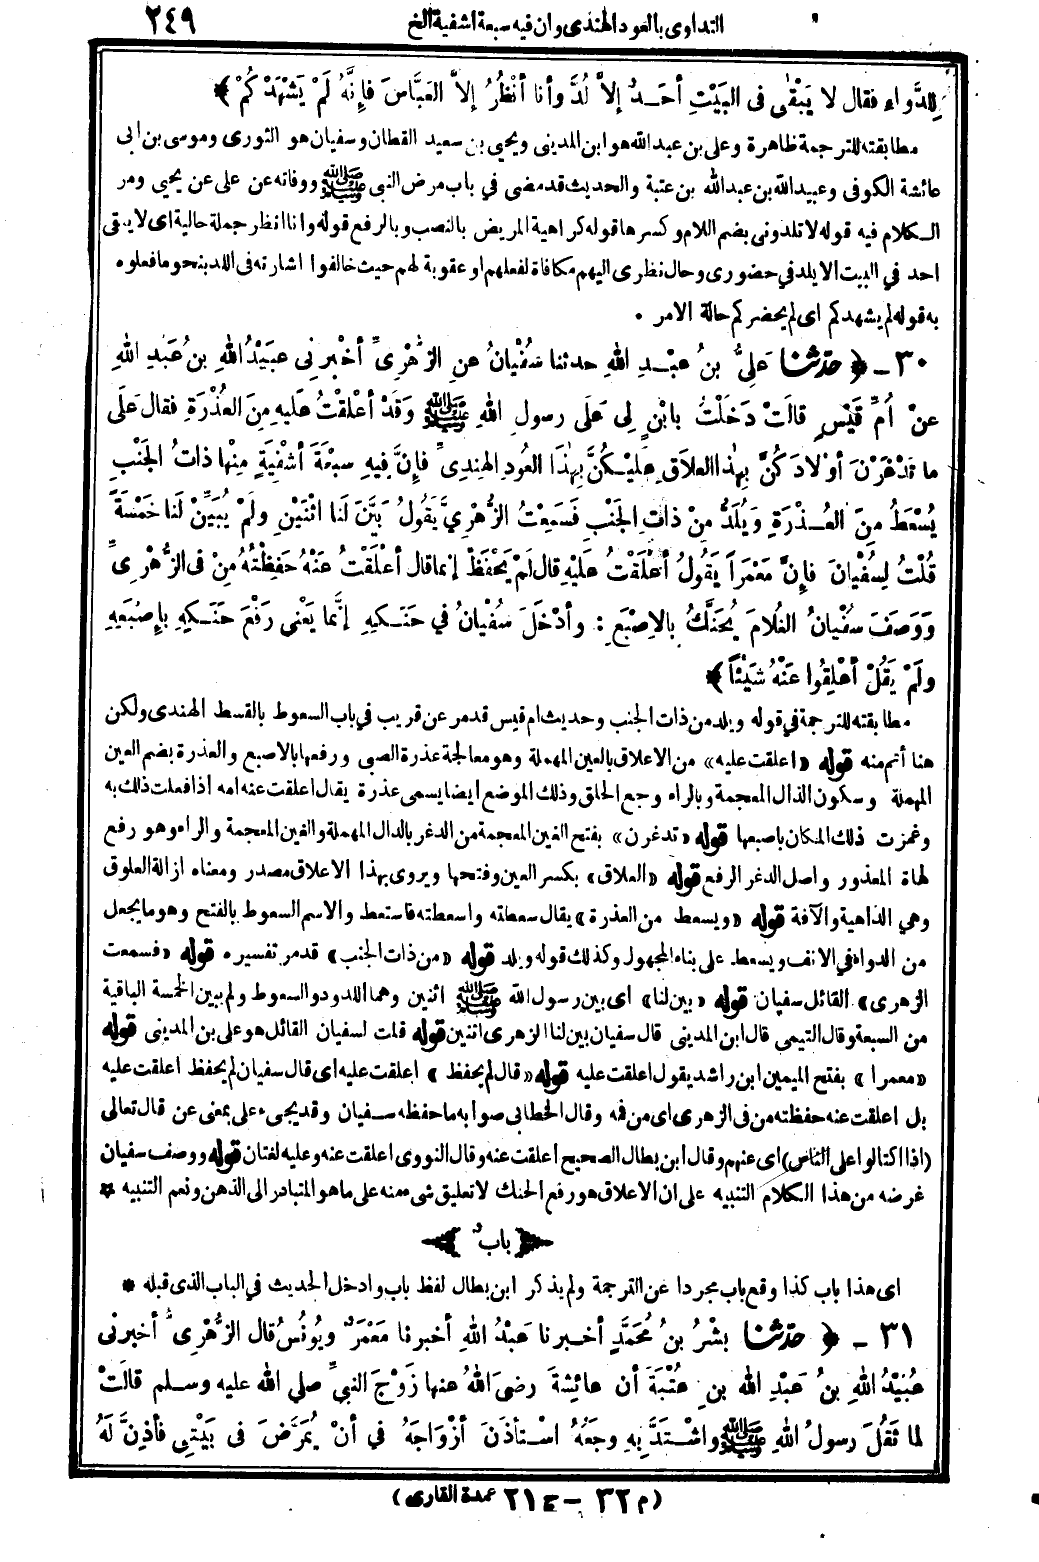 التداوى بالعود الهندى وان فيه سبعة اشفية الخ
٢٤٩
لِلدَّوَاءِ فقال لا يَبْقٰى فى البَيْتِ أحَدٌ إلاَّ لُدَّ وأنا أنْظُرُ إلاَّ العَبَّاسَ فإِنَّهُ لَمْ يَشْهَدْ كُمْ ﴾
مطابقته للترجمة ظاهرة وعلى بن عبد الله هو ابن المدينى ويحيى بن سعيد القطان وسفيان هو الثورى وموسى بن ابى
عائشة الكوفى وعبيد الله بن عبد الله بن عتبة والحديث قد مضى في باب مرض النبى ﷺ ووفاته عن على عن يحيى ومر
الكلام فيه قوله لا تلدونى بضم اللام وكسرها قوله كراهية المريض بالنصب وبالرفع قوله وانا انظر جملة حالية اى لا يبقى
احد في البيت الا يلد في حضورى وحال نظرى اليهم مكافاة لفعلهم او عقوبة لهم حيث خالفوا اشارته فى اللد بنحو ما فعلوه
به قوله لم يشهدكم اى لم يحضركم حالة الامر .
٣٠ ـ ﴿ حدّثنا عَلىُّ بنُ عبْدِ اللهِ حدثنا سُفْيانُ عنِ الزُّهْرِىِّ أخْبرنى عبَيْدُ اللهِ بنُ عَبْدِ اللهِ
عنْ أُمِّ قَيْسٍ قالَتْ دَخَلْتُ بابْنٍ لِى عَلَى رسول اللهِ ﷺ وَقَدْ أعْلَقْتُ عَليهِ مِنَ العُذْرَةِ فقال عَلَى
ما تَدْغَرْنَ أوْلادَ كُنَّ بِهٰذا العلاقِ علَيْكُنَّ بِهٰذَا العُودِ الهِنْدِىِّ فإنَّ فِيهِ سبْعَةَ أشْفِيَةٍ مِنْها ذاتُ الجَنْبِ
يُسْعَطُ مِنَ العُذْرَةِ ويُلَدُّ مِنْ ذاتِ الجَنْبِ فَسَمِعْتُ الزُّهْرِىَّ يَقُولُ بَيَّنَ لَنا اثْنَيْنِ ولَمْ يُبَيِّنْ لَنا خَمْسَةً
قُلْتُ لِسُفْيانَ فإنَّ مَعْمَراً يَقُولُ أعْلَقْتُ عَليْهِ قال لَمْ يَحْفَظْ إنما قال أعْلَقْتُ عَنْهُ حَفِظْتُهُ مِنْ فى الزُّهْرِىِّ
وَوَصَفَ سُفْيانُ الغُلامَ يُحَنَّكُ بالاِصْبَعِ : وأدْخَلَ سُفْيانُ في حَنَكِهِ إنَّما يَعْنِى رَفْعَ حَنَكِهِ بإِصْبَعِهِ
ولَمْ يَقُلْ أعْلِقُوا عَنْهُ شَيْئاً ﴾
مطابقته للترجمة في قوله ويلد من ذات الجنب وحديث ام قيس قد مر عن قريب في باب السعوط بالقسط الهندى ولكن
هنا أتم منه قوله «اعلقت عليه» من الاعلاق بالعين المهملة وهو معالجة عذرة الصبى ورفعها بالاصبع والعذرة بضم العين
المهملة وسكون الذال المعجمة وبالراء وجع الحلق وذلك الموضع ايضا يسمى عذرة يقال اعلقت عنه امه اذا فعلت ذلك به
وغمزت ذلك المكان باصبعها قوله «تدغرن» بفتح الغين المعجمة من الدغر بالدال المهملة والغين المعجمة والراء وهو رفع
لهاة المعذور واصل الدغر الرفع قوله «العلاق» بكسر العين وفتحها ويروى بهذا الاعلاق مصدر ومعناه ازالة العلوق
وهي الداهية والآفة قوله «ويسعط من العذرة» يقال سعطته واسعطته فاستعط والاسم السعوط بالفتح وهو ما يجعل
من الدواء في الانف ويسعط على بناء المجهول وكذلك قوله ويلد قوله «من ذات الجنب» قد مر تفسيره قوله «فسمعت
الزهرى» القائل سفيان قوله «بين لنا» اى بين رسول الله ﷺ اثنين وهما اللدود والسعوط ولم يبين الخمسة الباقية
من السبعة وقال التيمى قال ابن المدينى قال سفيان بين لنا الزهرى اثنين قوله قلت لسفيان القائل هو على بن المدينى قوله
«معمرا» بفتح الميمين ابن راشد يقول اعلقت عليه قوله «قال لم يحفظ» اعلقت عليه اى قال سفيان لم يحفظ اعلقت عليه
بل اعلقت عنه حفظته من فى الزهرى اى من فمه وقال الخطابى صوابه ما حفظه سفيان وقد يجىء على بمعنى عن قال تعالى
(اذا اكتالوا على الناس) اى عنهم وقال ابن بطال الصحيح اعلقت عنه وقال النووى اعلقت عنه وعليه لغتان قوله ووصف سفيان
غرضه من هذا الكلام التنبيه على ان الاعلاق هو رفع الحنك لا تعليق شىء منه على ما هو المتبادر الى الذهن ونعم التنبيه *
باب
اى هذا باب كذا وقع باب مجردا عن الترجمة ولم يذكر ابن بطال لفظ باب وادخل الحديث في الباب الذى قبله *
٣١ ـ ﴿ حدّثنا بشْرُ بنُ مُحَمَّدٍ أخبرنا عَبْدُ اللهِ أخبرنا مَعْمَرٌ ويُونُسُ قال الزُّهْرِىُّ أخبرنى
عُبَيْدُ اللهِ بنُ عَبْدِ اللهِ بنِ عُتْبَةَ أن عائِشةَ رضى اللهُ عنها زَوْجَ النبىِّ صلى الله عليه وسلم قالَتْ
لما ثَقُلَ رسولُ اللهِ ﷺ واشْتَدَّ بِهِ وجَعُهُ اسْتأذَنَ أزْوَاجَهُ في أنْ يُمَرَّضَ فى بَيْتِى فأذِنَّ لَهُ
(م ٣٢ – ج ٢١ عمدة القارى)